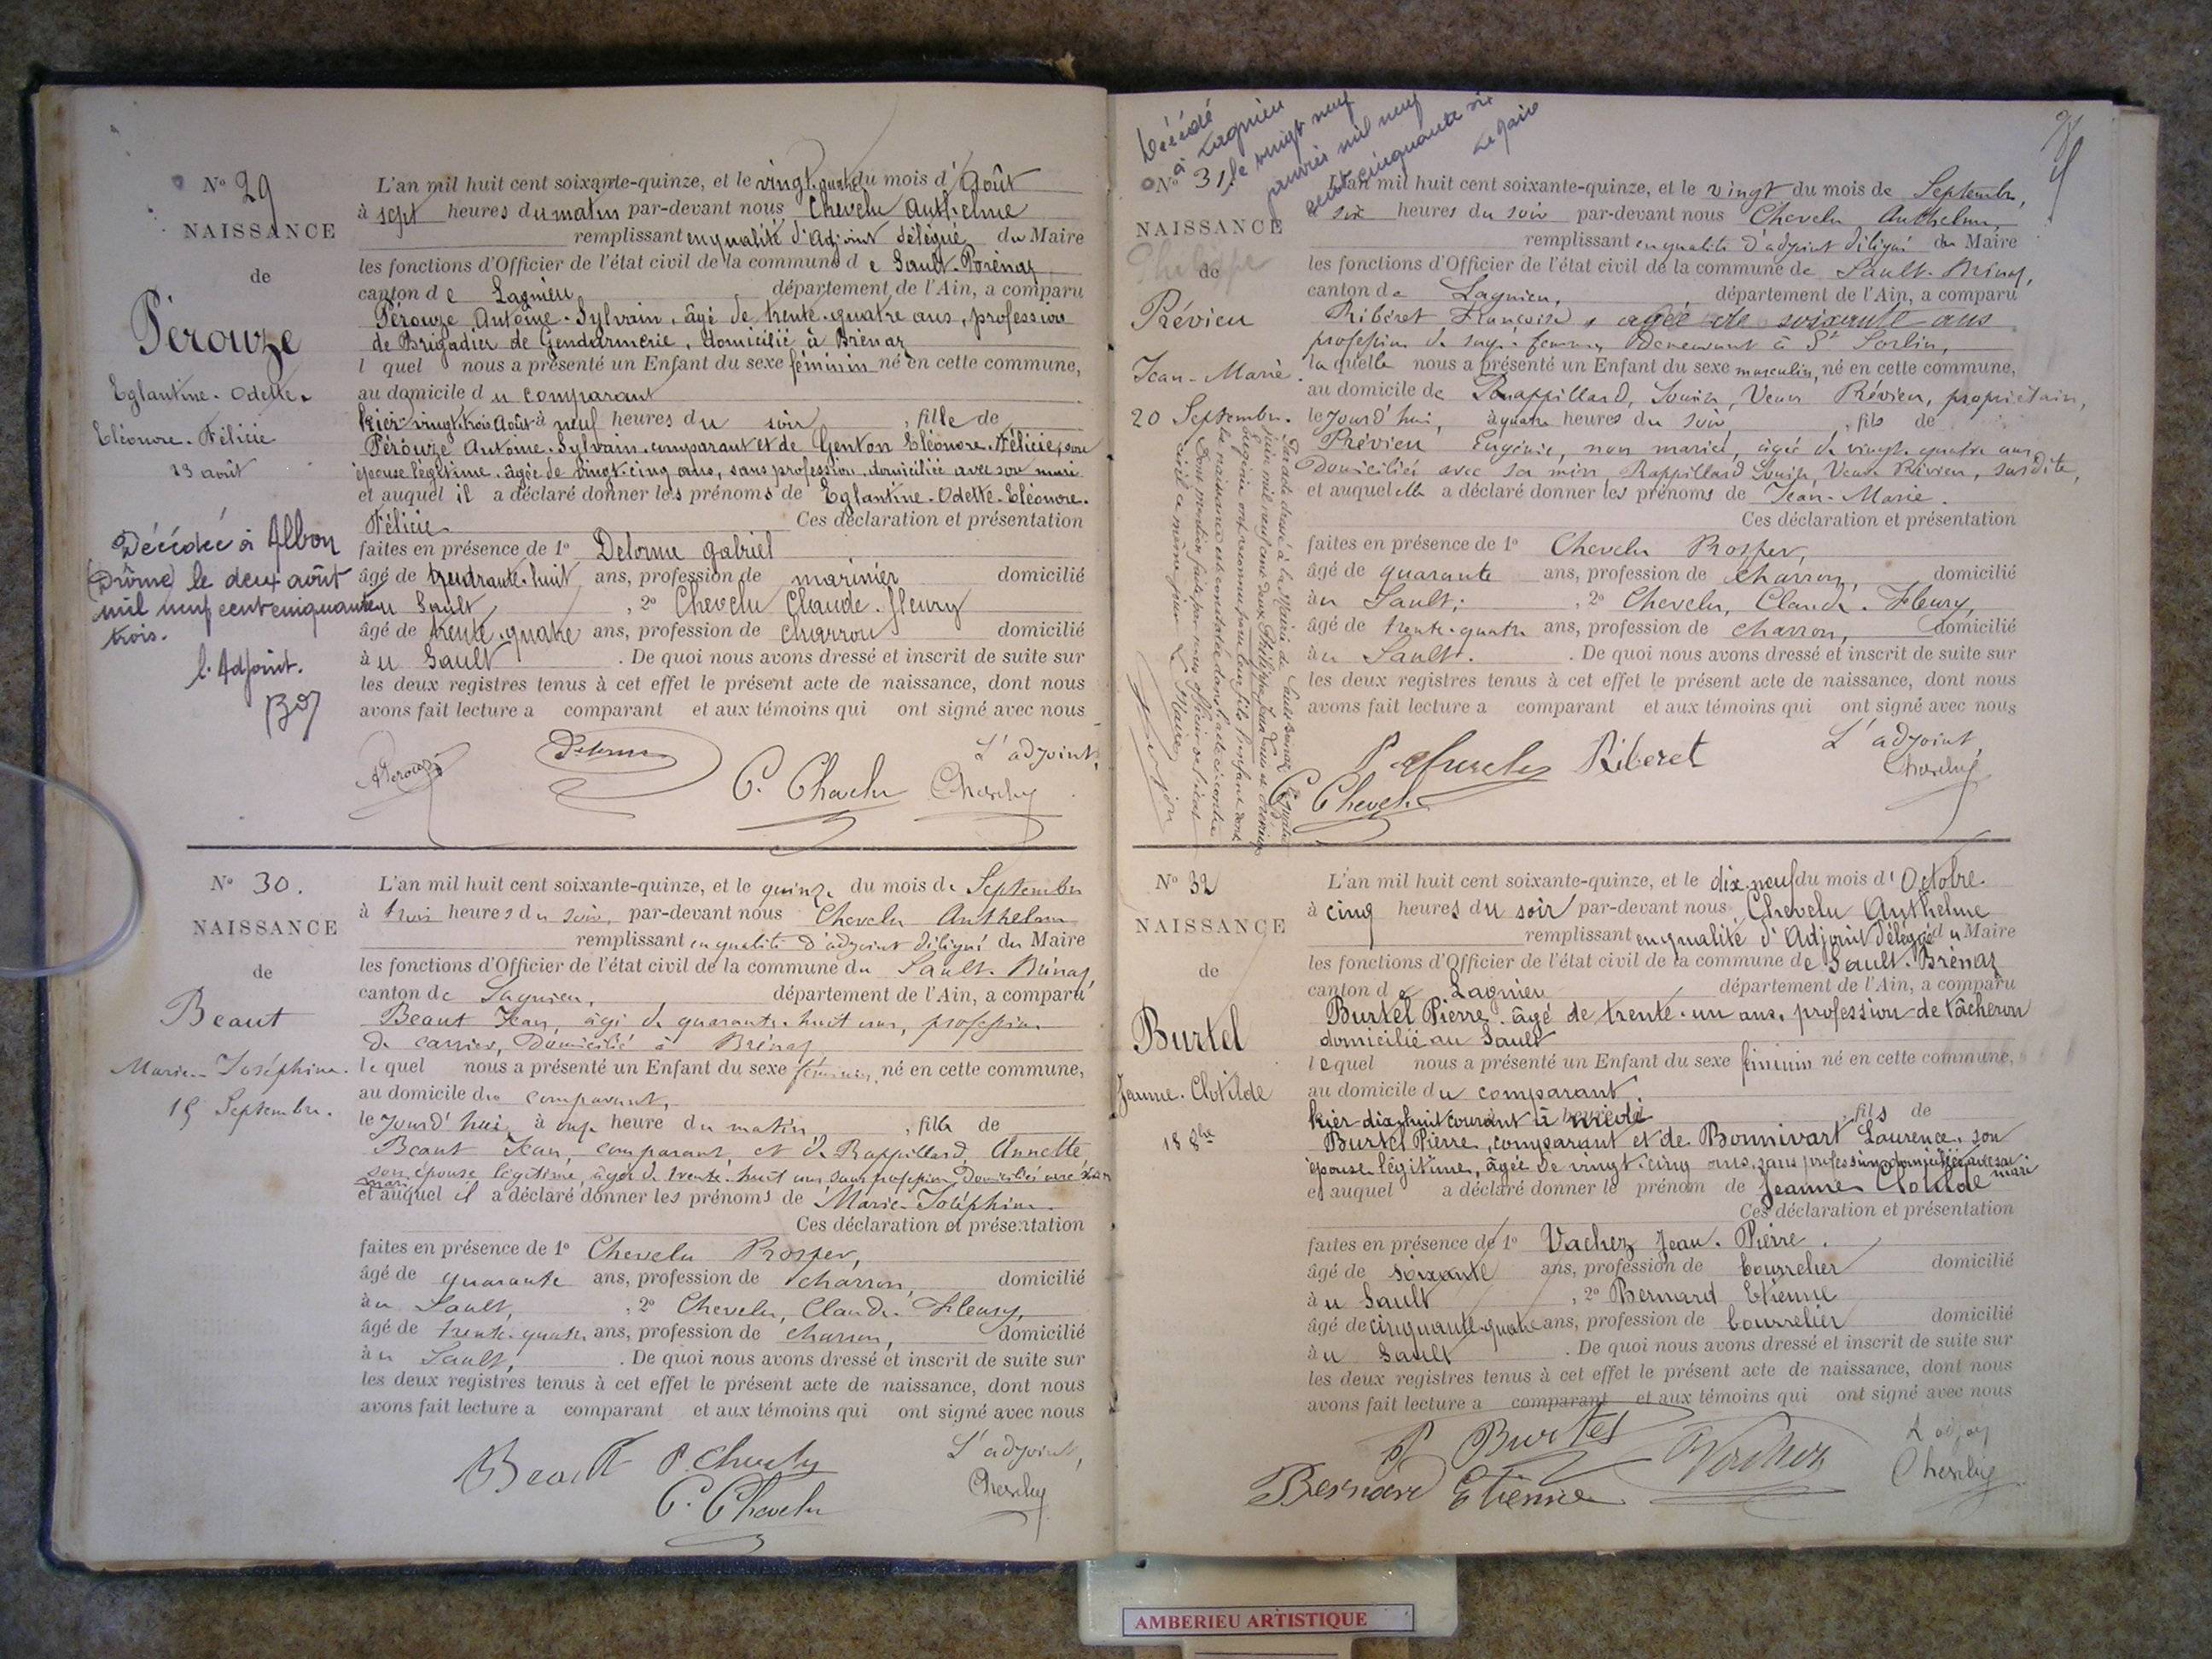 N° 29
NAISSANCE
de
Pérouze
Eglantine-Odette-
Eléonore-Félicie
23 août
Décédée à Albon
(Drôme) le deux août
mil neuf cent cinquante
trois.
l'Adjoint.
L'an mil huit cent soixante-quinze, et le vingt-quatre du mois d'Août
à sept heures du matin par-devant nous Chevelu Anthelme
remplissant en qualité d'Adjoint délégué du Maire
les fonctions d'Officier de l'état civil de la commune de Sault-Brénaz
canton de Lagnieu département de l'Ain, a comparu
Pérouze Antoine-Sylvain, âgé de trente-quatre ans, profession
de Brigadier de Gendarmerie, domicilié à Brénaz
lquel nous a présenté un Enfant du sexe féminin né en cette commune,
au domicile du comparant
hier vingt-trois Août à neuf heures du soir, fille de
Pérouze Antoine-Sylvain comparant et de Genton Eléonore-Félicie, son
épouse légitime, âgée de vingt-cinq ans, sans profession, domiciliée avec son mari
et auquel il a déclaré donner les prénoms de Eglantine-Odette-Eléonore-
Félicie Ces déclaration et présentation
faites en présence de 1° Delorme Gabriel
âgé de ans, profession de marinier domicilié
au Sault, 2° Chevelu Claude-fleury
âgé de trente-quatre ans, profession de charron domicilié
au Sault. De quoi nous avons dressé et inscrit de suite sur
les deux registres tenus à cet effet le présent acte de naissance, dont nous
avons fait lecture a comparant et aux témoins qui ont signé avec nous
APerouze Delorme L'adjoint,
C. Chevelu Chevelu
N° 30.
NAISSANCE
de
Beaut
Marie-Joséphine.
15 Septembre.
L'an mil huit cent soixante-quinze, et le quinze du mois de Septembre
à trois heures du soir, par-devant nous Chevelu Anthelme
remplissant en qualité d'adjoint délégué du Maire
les fonctions d'Officier de l'état civil de la commune du Sault-Brénaz,
canton de Lagnieu, département de l'Ain, a comparu
Beaut Jean, âgé de quarante-huit ans, profession
de carrier, domicilié à Brénaz
lequel nous a présenté un Enfant du sexe féminin, né en cette commune,
au domicile du comparant,
le Jourd'hui, à onze heure du matin, fille de
Beaut Jean, comparant et de Rappillard Annette,
son épouse légitime, âgée de trente-huit ans sans profession domiciliée avec son
mari
et auquel il a déclaré donner les prénoms de Marie-Joséphine.
Ces déclaration et présentation
faites en présence de 1° Chevelu Prosper,
âgé de quarante ans, profession de charron, domicilié
au Sault, 2° Chevelu, Claude-Fleury,
âgé de trente-quatre ans, profession de charron, domicilié
au Sault, . De quoi nous avons dressé et inscrit de suite sur
les deux registres tenus à cet effet le présent acte de naissance, dont nous
avons fait lecture a comparant et aux témoins qui ont signé avec nous
Beaut P. Chevelu L'adjoint,
C. Chevelu Chevelu
Décédé
à Lagnieu
le vingt neuf
janvier mil neuf
cent cinquante six
Le Maire
N° 31
NAISSANCE
Philippe
de
Prévieu
Jean-Marie.
20 Septembre.
L'an mil huit cent soixante-quinze, et le vingt du mois de Septembre,
à six heures du soir par-devant nous Chevelu Anthelme,
remplissant en qualité d'adjoint délégué du Maire
les fonctions d'Officier de l'état civil de la commune de Sault-Brénaz,
canton de Lagnieu, département de l'Ain, a comparu
Ribéret Françoise, agée de soixante ans
profession de sage-femme demeurant à St Sorlin,
laquelle nous a présenté un Enfant du sexe masculin, né en cette commune,
au domicile de Rappillard, Louise, Veuve Prévieu, propriétaire,
le Jourd'hui, à quatre heures du soir, fils de
Prévieu Eugénie, non mariée, âgée de vingt-quatre ans
domiciliée avec sa mère, Rappillard Louise, Veuve Prévieu, susdite,
et auquel elle a déclaré donner les prénoms de Jean-Marie.
Ces déclaration et présentation
faites en présence de 1° Chevelu Prosper,
âgé de quarante ans, profession de charron, domicilié
au Sault; , 2° Chevelu, Claude-Fleury,
âgé de trente-quatre ans, profession de charron, domicilié
au Sault. . De quoi nous avons dressé et inscrit de suite sur
les deux registres tenus à cet effet le présent acte de naissance, dont nous
avons fait lecture a comparant et aux témoins qui ont signé avec nous
P. Chevelu Riberet L'adjoint,
C. Chevelu Chevelu
Par acte dressé à la Mairie de Sault-Brénaz
juin mil neuf cent deux, Philippe, Jean
Eugénie ont reconnu pour leur fils l'enfant dont
la naissance est constatée dans l'acte ci-contre
Dont mention faite par nous officier de l'état
civil ce même jour Le Maire,
N° 32
NAISSANCE
de
Burtel
Jeanne-Clotilde
18 8bre
L'an mil huit cent soixante-quinze, et le dix-neuf du mois d'Octobre.
à cinq heures du soir par-devant nous Chevelu Anthelme
remplissant en qualité d'Adjoint délégué du Maire
les fonctions d'Officier de l'état civil de la commune de Sault-Brénaz
canton de Lagnieu département de l'Ain, a comparu
Burtel Pierre âgé de trente-un ans, profession de tâcheron
domicilié au Sault
lequel nous a présenté un Enfant du sexe féminin né en cette commune,
au domicile du comparant
hier dix-huit courant à heure de fils de
Burtel Pierre, comparant et de Bonnivart Laurence, son
épouse légitime, âgée de vingt-cinq ans, sans profession domiciliée avec son
mari
et auquel a déclaré donner le prénom de Jeanne Clotilde
Ces déclaration et présentation
faites en présence de 1° Vachez Jean-Pierre.
âgé de soixante ans, profession de bourrelier domicilié
au Sault , 2° Bernard Etienne
âgé de cinquante-quatre ans, profession de bourrelier domicilié
au Sault . De quoi nous avons dressé et inscrit de suite sur
les deux registres tenus à cet effet le présent acte de naissance, dont nous
avons fait lecture a comparant et aux témoins qui ont signé avec nous
P Burtel Vachez L'adjoint
Bernard Etienne Chevelu
AMBERIEU ARTISTIQUE